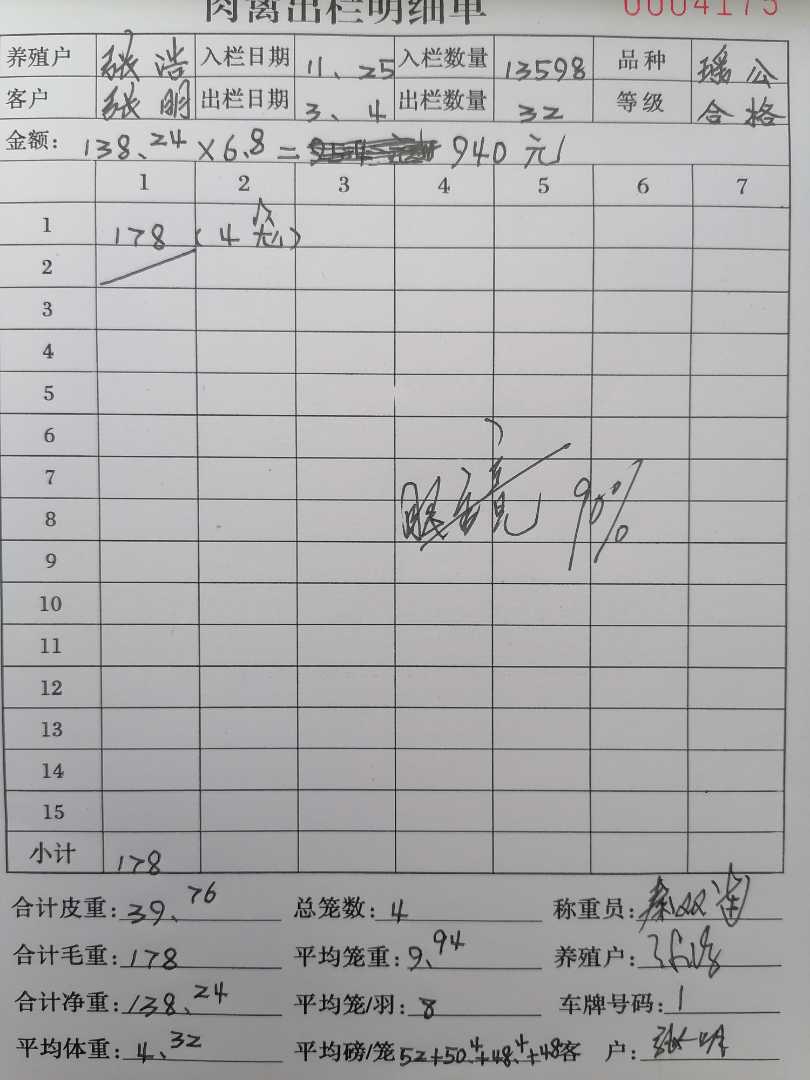 肉禽出栏明细单 0004175
养殖户 张浩 入栏日期 11、25 入栏数量 13598 品种 瑶公
客户 张明 出栏日期 3、4 出栏数量 32 等级 合格
金额: 138.24×6.8= 940元
1 2 3 4 5 6 7
1 178 (4笼)
2
3
4
5
6
7
8 90%
9
10
11
12
13
14
15
小计 178
合计皮重: 39.76 总笼数: 4 称重员:
合计毛重: 178 平均笼重: 9.94 养殖户: 张浩
合计净重: 138.24 平均笼/羽: 8 车牌号码: 1
平均体重: 4.32 平均磅/笼 52+50.4+48.4+48 客 户: 张明